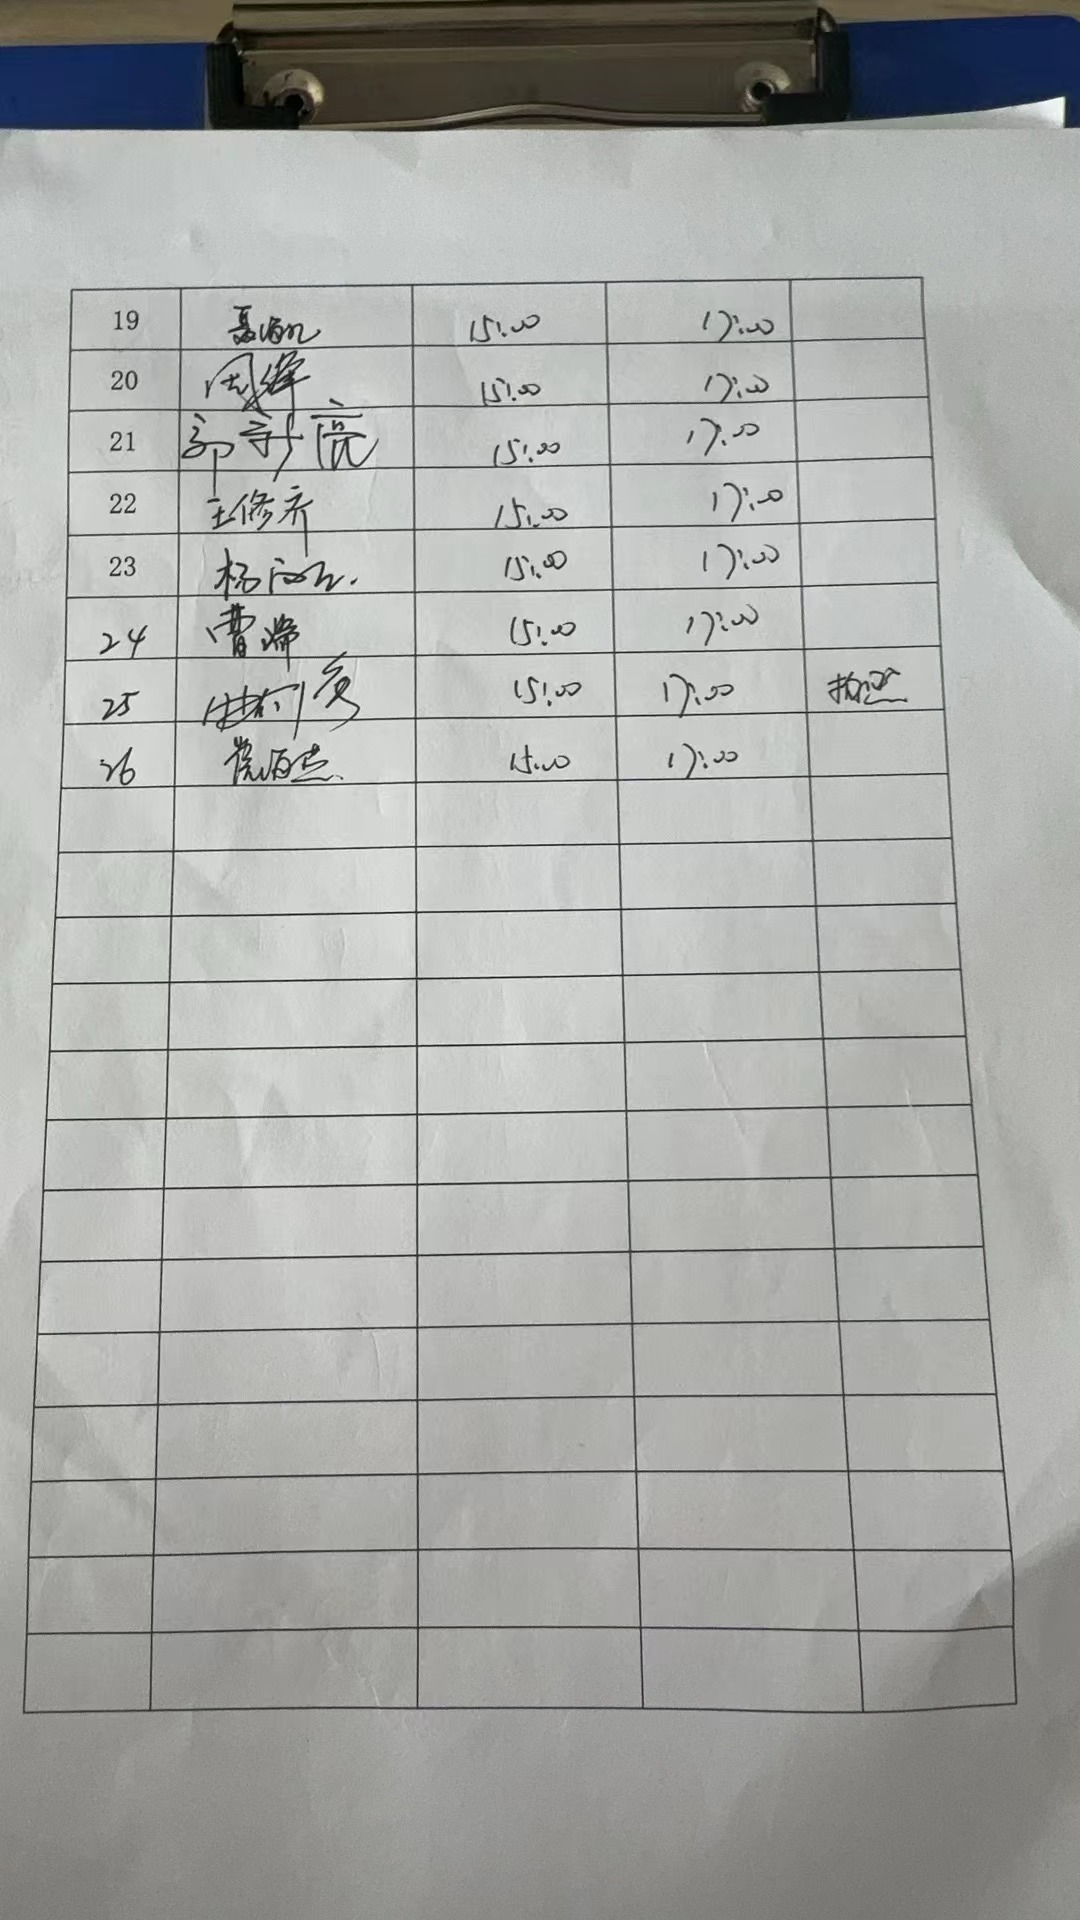 19 15:00 17:00
20 周锋 15:00 17:00
21 郭新亮 15:00 17:00
22 王修齐 15:00 17:00
23 杨 15:00 17:00
24 曹端 15:00 17:00
25 15:00 17:00 拍照
26 15:00 17:00